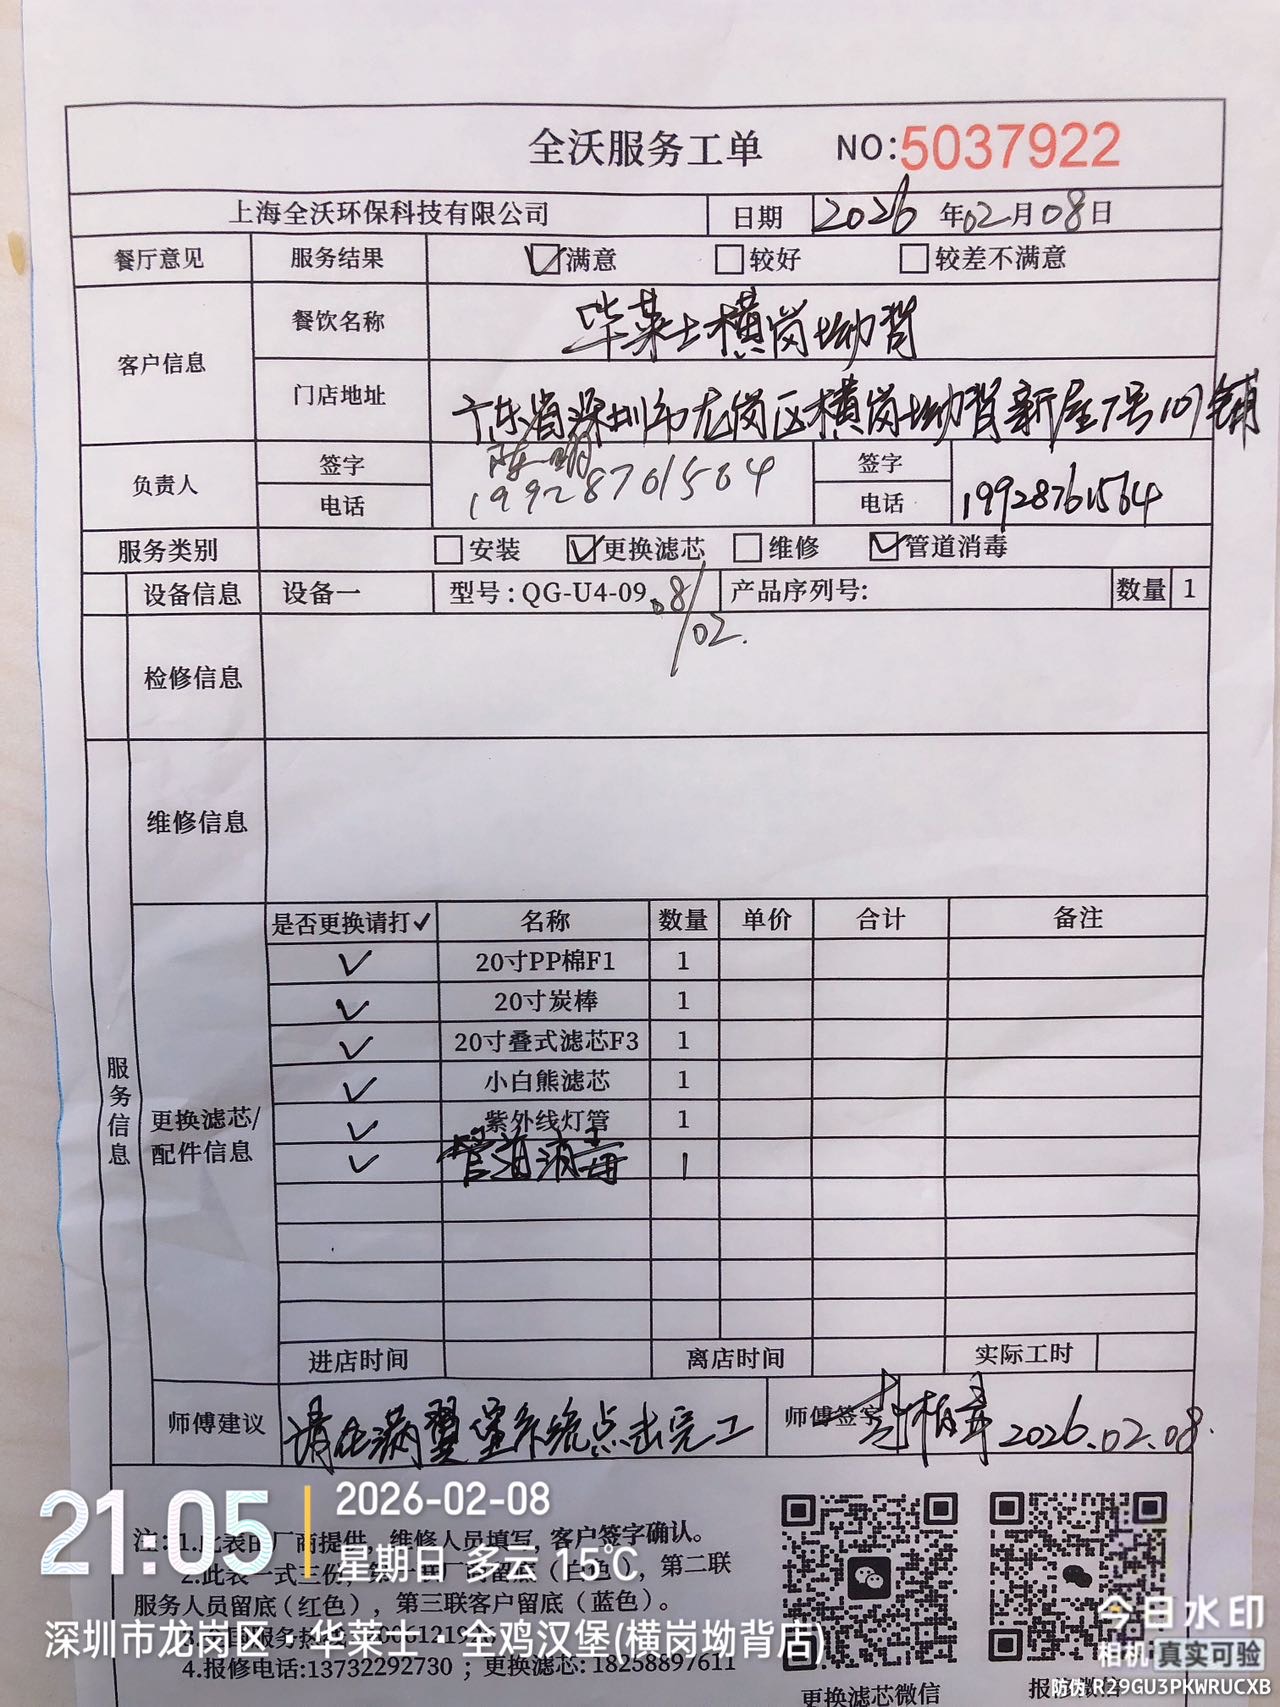 全沃服务工单 NO:5037922
上海全沃环保科技有限公司 日期 2026年02月08日
餐厅意见 服务结果 满意 较好 较差不满意
客户信息 餐饮名称 华莱士横岗坳背
门店地址 广东省深圳市龙岗区横岗坳背新屋7号101铺
负责人 签字 陈明 签字
电话 19928761564 电话 19928761564
服务类别 安装 ✓更换滤芯 维修 ✓管道消毒
设备信息 设备一 型号:QG-U4-09 产品序列号: 数量 1
08/02.
检修信息
维修信息
服务信息
更换滤芯/配件信息
是否更换请打✓ 名称 数量 单价 合计 备注
✓ 20寸PP棉F1 1
✓ 20寸炭棒 1
✓ 20寸叠式滤芯F3 1
✓ 小白熊滤芯 1
✓ 紫外线灯管 1
✓ 管道消毒 1
进店时间 离店时间 实际工时
师傅建议 请在满翼堡系统点击完工 师傅签字 2026.02.08.
注:1.此表由厂商提供,维修人员填写,客户签字确认。
2.此表一式三份,第二联
服务人员留底(红色),第三联客户留底(蓝色)。
4.报修电话:13732292730;更换滤芯:18258897611
更换滤芯微信
报修微信
21:05
2026-02-08
星期日 多云 15℃
深圳市龙岗区·华莱士·全鸡汉堡(横岗坳背店)
今日水印
相机 真实可验
防伪 R29GU3PKWRUCXB